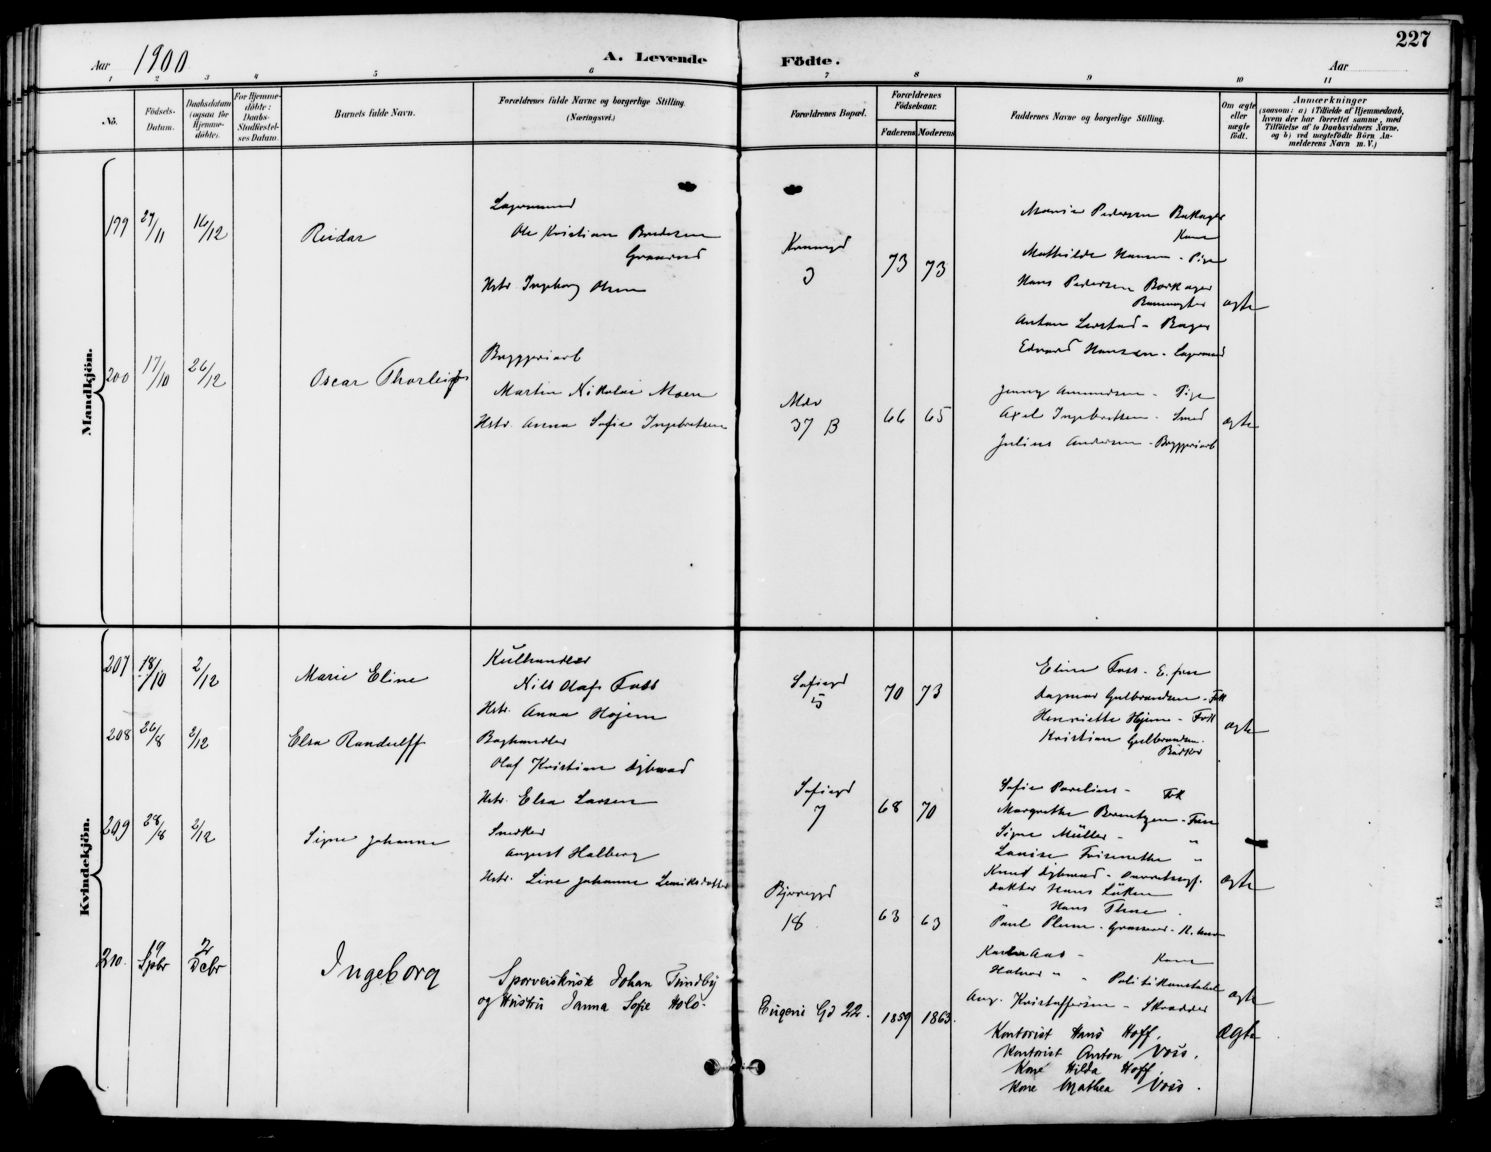 227
Aar 1900
A. Levende Födte.
Aar
1 2 3 4 5 6 7 8 9 10 11
No.
Födsels-Datum.
Daabsdatum (ogsaa for Hjemme-döbte).
For Hjemme-döbte: Daabs-Stadfæstel-ses Datum.
Barnets fulde Navn.
Forældrenes fulde Navne og borgerlige Stilling. (Næringsvei.)
Forældrenes Bopæl.
Forældrenes Födselsaar.
Faderens Moderens
Faddernes Navne og borgerlige Stilling.
Om ægte eller uægte födt.
Anmærkninger
(saasom: a) i Tilfælde af Hjemmedaab, hvem der har forrettet samme, med Tilföielse af to Daabsvidners Navne, og b) ved uægtefödte Börn An-melderens Navn m. V.)
Mandkjön.
199 27/11 16/12 Reidar
Lagermand
Ole Kristian Bredesen
Hstr Ingeborg Olsen
3
73 73
Marie Pedersen
Kone
Mathilde Hansen - Pige
Hans Pedersen
Anton - Bager
Edvard Hansen - Lagermand
ægte
200 17/10 26/12 Oscar Thorleif
Bryggeriarb
Martin Nikolai Moen
Hstr. Anna Sofie Ingebretsen
37 B
66 65
Jenny Amundsen - Pige
Axel Ingebretsen - Smed
Julius Andersen - Bryggeriarb
ægte
Kvindekjön.
207 18/10 2/12 Marie Eline
Kulhandler
Nils Olaf Foss
Hstr. Anna Hojem
Sofiegd
5
70 73
Eline Foss - E. frue
Dagmar Gulbrandsen - Frk
Henriette Hojem - Frk
Kristian Gulbrandsen -
Bödker
ægte
208 26/8 2/12 Elsa Randulff
Boghandler
Olaf Kristian Dybwad
Hstr. Elsa Larsen
Sofiegd
7
68 70
Sofie Parelius - Frk
Margrethe Berentzen - Frue
Signe Müller - "
Louise "
Knud Dybwad - Overretssagf.
Doktor Hans Lüken
" Hans Thue
Paul Plum - Grosserer -
ægte
209 28/8 2/12 Signe Johanne
Snedker
August Halberg
Hstr. Line Johanne
18
63 63
Aas - Kone
Halvor " - Politikonstabel
Aug. Kristoffersen - Skrædder
ægte
210. 19 Spbr 2 Dcbr Ingeborg
Sporveiskusk Johan Tundby
og Hustru Janna Sofie Holo.
Eugeni Gd 22.
1859 1863.
Kontorist Hans Hoff.
Kontorist Anton Voss.
Kone Hilda Hoff.
Kone Mathea Voss.
ægte